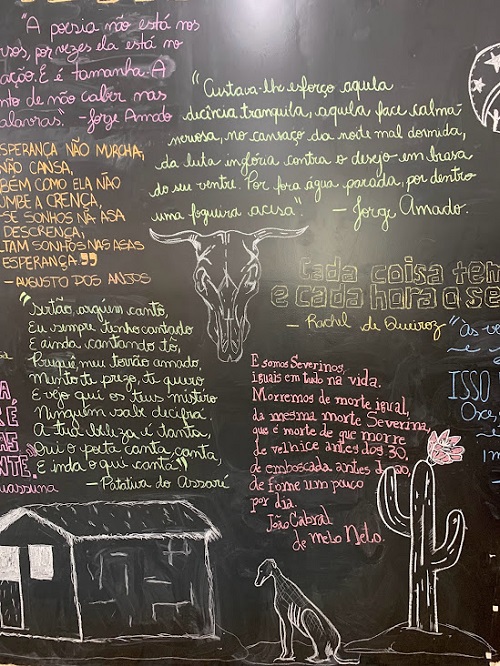 "A poesia não está nos
rsos, por vezes ela está no
ação. E é tamanha. A
nto de não caber nas
alavras" - Jorge Amado
"Custava-lhe esforço aquela
decência tranquila, aquela face calma-
nervosa, no cansaço da noite mal dormida,
da luta inglória contra o desejo em brasa
do seu ventre. Por fora água parada, por dentro
uma fogueira acesa". - Jorge Amado.
SPERANÇA NÃO MURCHA,
NÃO CANSA,
BÉM COMO ELA NÃO
UMBE A CRENÇA,
-SE SONHOS NA ASA
DESCRENÇA;
LTAM SONHOS NAS ASAS
ESPERANÇA."
- AUGUSTO DOS ANJOS
Cada coisa tem
e cada hora o se
- Rachel de Queiroz
"Sertão, arguém cantô,
Eu sempre tenho cantado
E ainda cantando tô,
Pruquê, meu torrão amado,
Munto te prezo, te quero
E vejo qui os teus mistero
Ninguém sabe decifrá
A tua beleza é tanta,
Qui o poeta canta, canta,
E inda o qui cantá"
- Patativa do Assaré
E somos Severinos,
iguais em tudo na vida.
Morremos de morte igual,
da mesma morte Severina,
que é morte de que morre
de velhice antes dos 30,
de emboscada antes
de fome um pouco
por dia.
João Cabral
de Melo Neto.
"As ve
ISSO
A
RÉ
AS
NTE."
uassuna